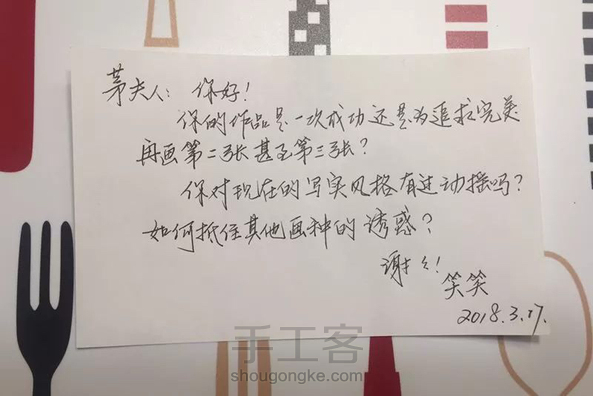 茅夫人：你好！
你的作品是一次成功还是为追求完美
再画第二张甚至第三张？
你对现在的写实风格有过动摇吗？
如何抵住其他画种的诱惑？
谢谢！
笑笑
2018.3.17.
手工客
shougongke.com